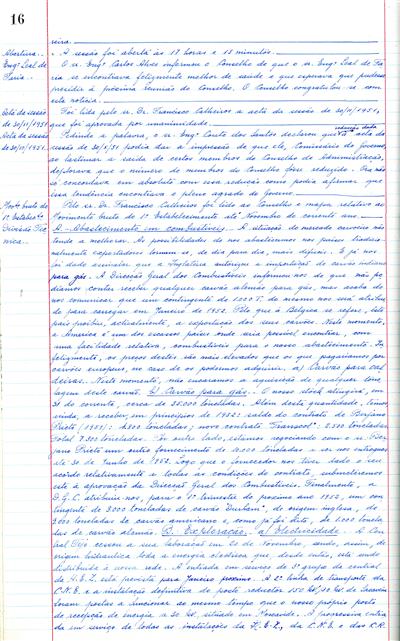 16
reira.
Abertura. A sessão foi aberta às 17 horas e 15 minutos.
Engº Leal de O sr. Engº Carlos Alves informou o Conselho de que o sr. Engº Leal de Fa-
Faria. ria se encontrava felizmente melhor de saúde e que esperava que pudesse
presidir à próxima reunião do Conselho. O Conselho congratulou-se com
esta notícia.
Acta da sessão Foi lida pelo sr. Dr. Francisco Calheiros a acta da sessão de 20/11/1951,
de 20/11/1951 que foi aprovada por unanimidade.
Acta da sessão Pedindo a palavra, o sr. Engº Couto dos Santos declarou que a redacção dada à acta da
sessão de 30/x/51 podia dar a impressão de que ele, Comissário do Governo,
ao lastimar a saída de certos membros do Conselho de Administração,
deplorava que o número de membros do Conselho fosse reduzido. Ora não
só concordava em absoluto com essa redução como podia afirmar que
essa tendência encontrava o pleno agrado do Governo.
Pelo sr. Dr. Francisco Calheiros foi lido ao Conselho o mapa relativo ao
Movimento bruto do 1º Estabelecimento até Novembro do corrente ano.
Divisão Téc- A - Abastecimento em combustíveis. A situação do mercado carvoeiro não
nica. tende a melhorar. As possibilidades de nos abastecermos nos países tradicio-
nalmente exportadores tornam-se, de dia para dia, mais difíceis. E já nos
foi
para gás. A Direcção Geral dos Combustíveis informou-nos de que não po-
díamos contar receber qualquer carvão alemão para gás, mas acaba de
nos comunicar que um contingente de 1.000 T. do mesmo nos será atribuí-
do para carregar em Janeiro de 1952. Pelo que à Bélgica se refere, este
país proíbe, actualmente, a exportação dos seus carvões. Neste momento,
a América é um dos escassos países onde seria possível encontrar, com
uma facilidade relativa, combustíveis para o nosso abastecimento. In-
felizmente, os preços destes são mais elevados que os que pagaríamos por
carvões europeus, no caso de os podermos adquirir. a) Carvão para cal-
deiras. Neste momento, não encaramos a aquisição de qualquer tone-
lagem deste carvão. b) Carvão para gás. O nosso stock atingirá, em
30 do corrente, cerca de 25.000 toneladas. Além desta quantidade, temos
ainda, a receber em princípios de 1952: saldo do contrato de Benjamim
Prieto (1951): 4.800 toneladas; novo contrato "Transcol": 2.500 toneladas.
Total 7.300 toneladas. Por outro lado, estamos negociando com o sr. Ben-
jamim Prieto um outro fornecimento de 10.000 toneladas a ser-nos entregues
até 30 de Junho de 1952. Logo que o fornecedor nos tiver dado o seu
acordo relativamente a todas as condições do contrato, submeteremos
este à aprovação da Direcção Geral dos Combustíveis. Finalmente, a
D.G.C. atribuiu-nos, para o 1º trimestre do próximo ano 1952, um con-
tingente de 3.000 toneladas de carvão Durham, de origem inglesa, de
2.000 toneladas de carvão americano e, como já foi dito, de 1.000 tonela-
das de carvão alemão. B. Exploração. a) Electricidade. A Cen-
tral Tejo cessou a sua laboração em 20 de Novembro, sendo, assim, de
origem hidráulica toda a energia eléctrica que, desde então, está sendo
distribuída à nossa rede. A entrada em serviço do 1º grupo da central
da H.E.Z. está prevista para Janeiro próximo. A 2ª linha de transporte da
C.N.E. e a instalação definitiva do posto redutor 150 kV/30 kV. de Sacavém
foram postas a funcionar ao mesmo tempo que o nosso próprio posto
de recepção de energia a 30 kV, situado em Moscavide. A progressiva entra-
da em serviço de todas as instalações da H.E.Z., da C.N.E. e das C.R.